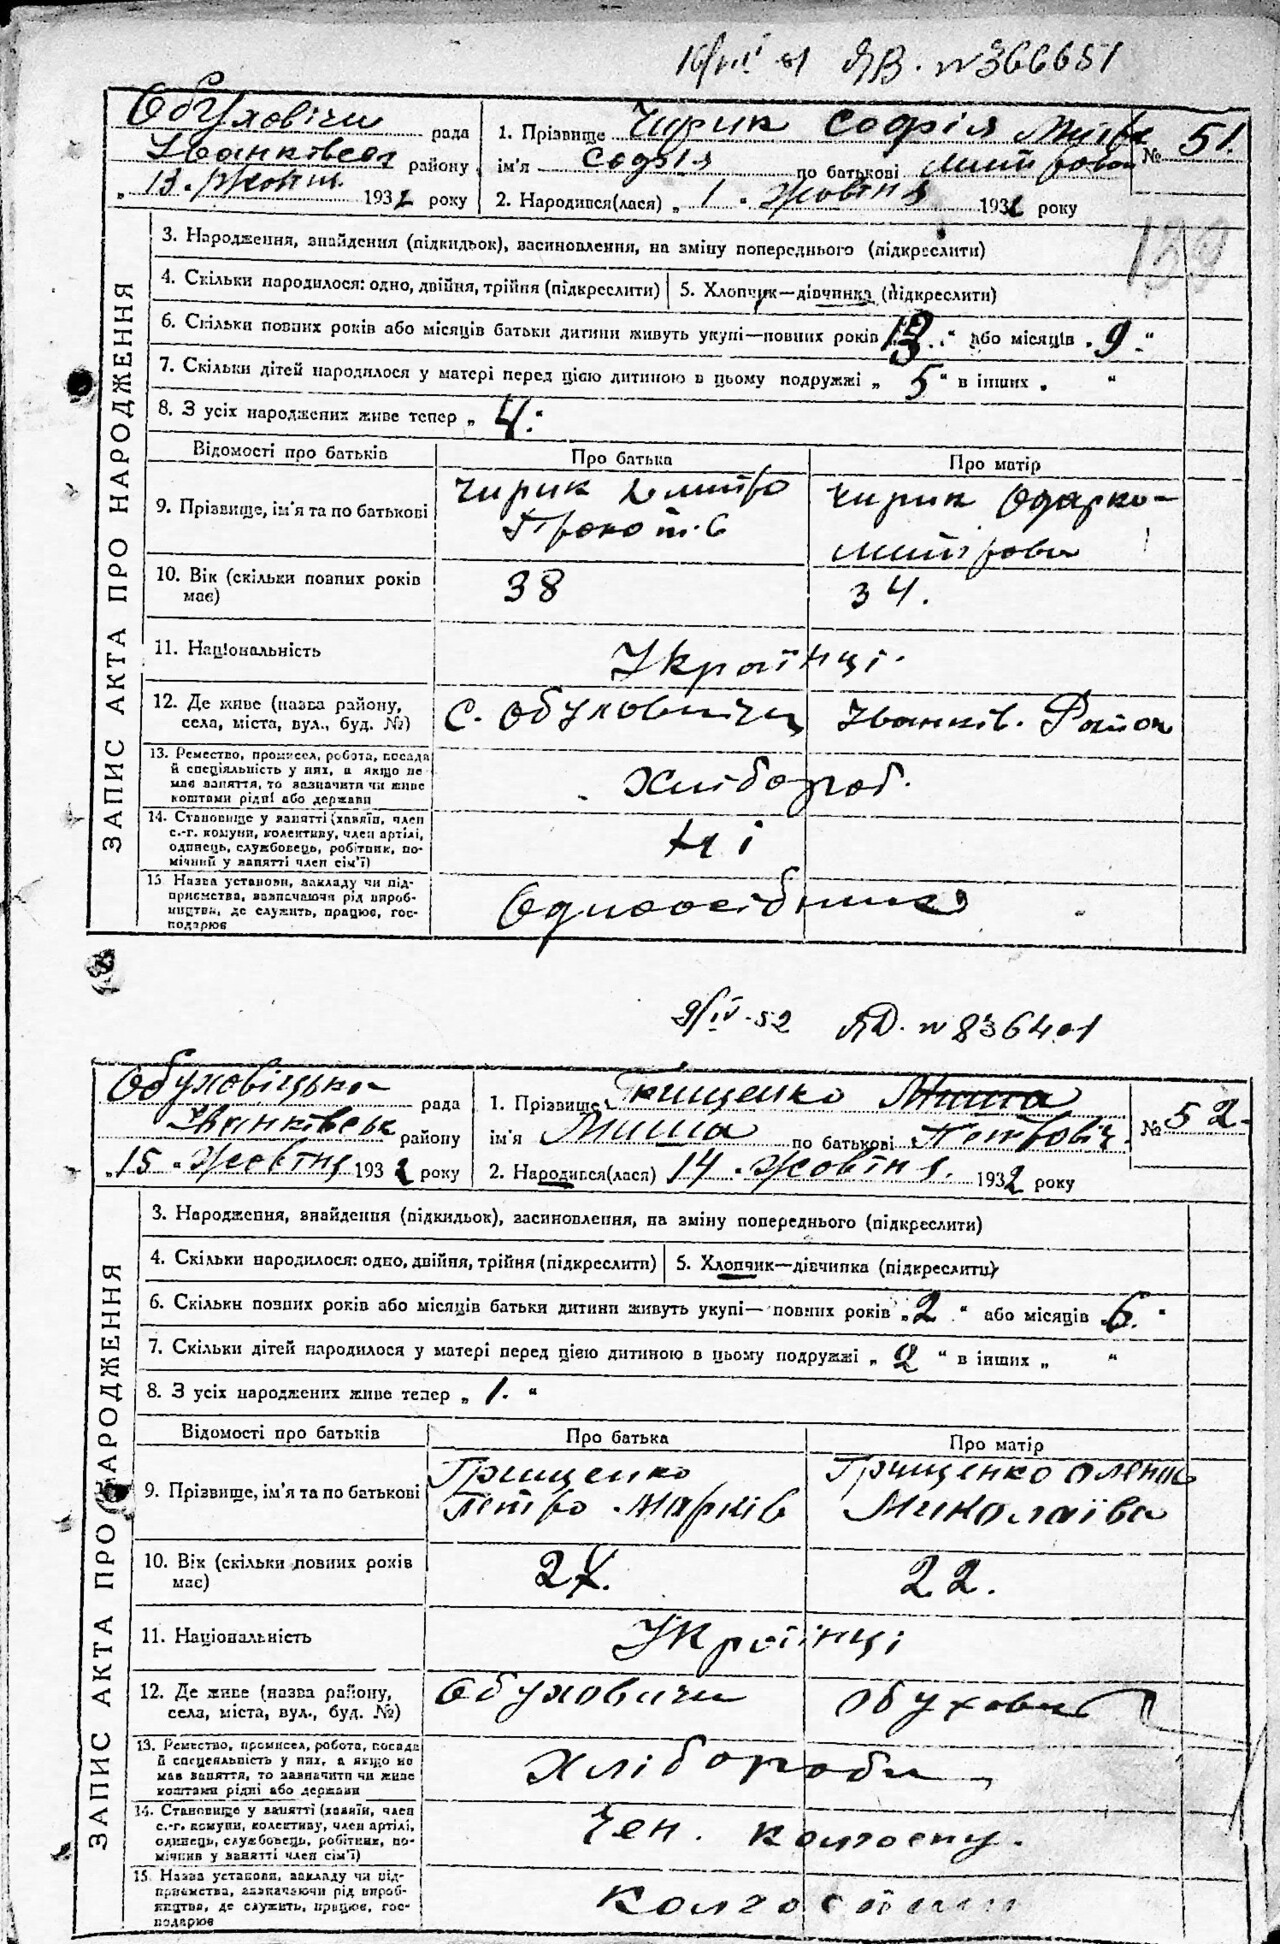 ЯВ. № 366651
Обуховичи рада
Іванківськ району
„ 13. жовтн. 1932 року
1. Прізвище Чирик Софія
ім'я Софія по батькові Митрова
2. Народився(лася) „ 1 " жовтня 1932 року
№ 51.
ЗАПИС АКТА ПРО НАРОДЖЕННЯ
3. Народження, знайдення (підкидьок), засиновлення, на зміну попереднього (підкреслити)
4. Скільки народилося: одно, двійня, трійня (підкреслити)
5. Хлопчик—дівчинка (підкреслити)
6. Скільки повних років або місяців батьки дитини живуть укупі—повних років " або місяців „ 9. "
7. Скільки дітей народилося у матері перед цією дитиною в цьому подружжі „ 5 " в інших „ "
8. З усіх народжених живе тепер „ 4. "
Відомості про батьків
Про батька
Про матір
9. Прізвище, ім'я та по батькові
Чирик Дмитро
Прокопів
Чирик Одарка
Митрова
10. Вік (скільки повних років має)
38
34.
11. Національність
Українці.
12. Де живе (назва району, села, міста, вул., буд. №)
С. Обуховичи Іванків. Район
13. Ремество, промисел, робота, посада
й спеціяльність у них, а якщо не
має заняття, то зазначити чи живе
коштами рідні або держави
Хлібороб.
14. Становище у занятті (хазяїн, член
с.-г. комуни, колективу, член артілі,
одинець, службовець, робітник, по-
мічний у занятті член сім'ї)
15. Назва установи, закладу чи під-
приємства, зазначаючи рід вироб-
ництва, де служить, працює, гос-
подарює
Одноосібники
9/IV-52 ЯД. № 836401
Обуховіцька рада
Іванківськ району
„ 15 " жовтня 1932 року
1. Прізвище Грищенко Миша
ім'я Миша по батькові Петровіч.
2. Народився(лася) 14 " жовтня. 1932 року
№ 52.
ЗАПИС АКТА ПРО НАРОДЖЕННЯ
3. Народження, знайдення (підкидьок), засиновлення, на зміну попереднього (підкреслити)
4. Скільки народилося: одно, двійня, трійня (підкреслити)
5. Хлопчик—дівчинка (підкреслити)
6. Скільки повних років або місяців батьки дитини живуть укупі—повних років „ 2 " або місяців „ 6. "
7. Скільки дітей народилося у матері перед цією дитиною в цьому подружжі „ 2 " в інших „ "
8. З усіх народжених живе тепер „ 1. "
Відомості про батьків
Про батька
Про матір
9. Прізвище, ім'я та по батькові
Грищенко
Петро Марків
Грищенко Олена
Миколаївна
10. Вік (скільки повних років має)
22.
11. Національність
Українці
12. Де живе (назва району, села, міста, вул., буд. №)
Обуховичи
Обухови
13. Ремество, промисел, робота, посада
й спецеяльність у них, а якщо не
має заняття, то зазначити чи живе
коштами рідні або держави
Хлібороби
14. Становище у занятті (хазяїн, член
с.-г. комуни, колективу, член артілі,
одинець, службовець, робітник, по-
мічник у занятті член сім'ї)
Чен. колгоспу.
15. Назва установи, закладу чи під-
приємства, зазначаючи рід вироб-
ництва, де служить, працює, гос-
подарює